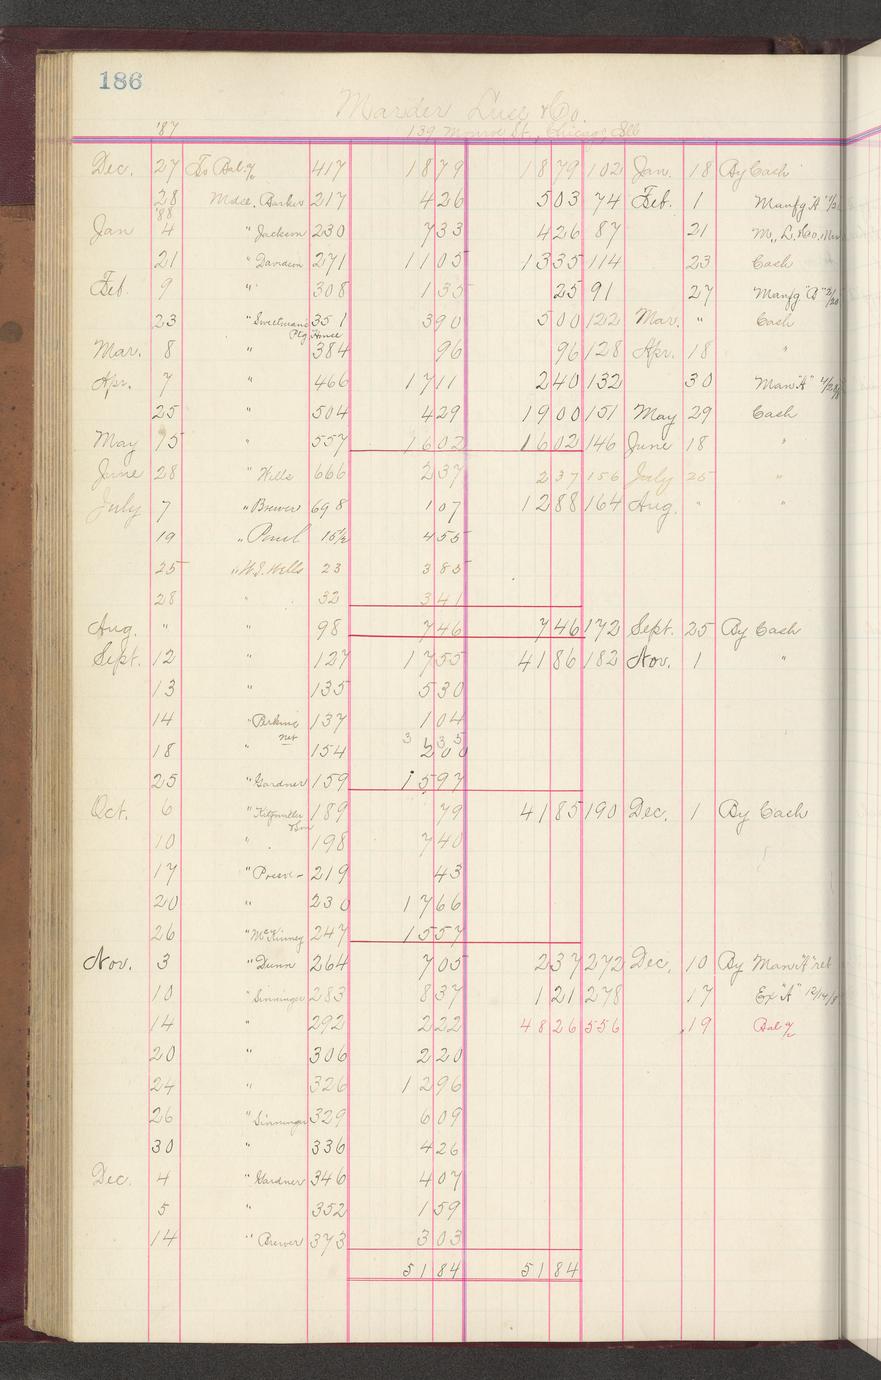 186
Marder Luse & Co.
'87 139 Monroe St., Chicago, Ills
Dec. 27 To Bal. % 417 18 79 18 79 102 Jan. 18 By Cash
28 Mdse. Barker 217 4 26 5 03 74 Feb. 1 Manfg "A"
'88
Jan 4 " Jackson 230 7 33 4 26 87 21 M., L. & Co.
21 " Davidson 271 11 05 13 35 114 23 Cash
Feb. 9 " 308 1 35 25 91 27 Manfg "B" 2/20
23 " Sweetman's 351 3 90 5 00 122 Mar. " Cash
Ptg House
Mar. 8 " 384 96 96 128 Apr. 18 "
Apr. 7 " 466 17 11 2 40 132 30 Man "A"
25 " 504 4 29 19 00 151 May 29 Cash
May 15 " 557 16 02 16 02 146 June 18 "
June 28 " Wells 666 2 37 2 37 156 July 25 "
July 7 " Brewer 698 1 07 12 88 164 Aug. " "
19 " 15½ 4 55
25 " W.S. Wells 23 3 85
28 " 32 3 41
Aug. " " 98 7 46 7 46 172 Sept. 25 By Cash
Sept. 12 " 127 17 55 41 86 182 Nov. 1 "
13 " 135 5 30
14 " Perkins 137 1 04
net 3 30 5
18 " 154 2 00
25 " Gardner 159 15 97
Oct. 6 " 189 79 41 85 190 Dec. 1 By Cash
10 " 198 7 40
17 " 219 43
20 " 230 17 66
26 " McKinney 247 15 57
Nov. 3 " Dunn 264 7 05 2 37 272 Dec. 10 By Man "A" net
10 " Sinninger 283 8 37 1 21 278 17 Ex "A" 12/14/8
14 " 292 2 22 48 26 556 19 Bal %
20 " 306 2 20
24 " 326 12 96
26 " Sinninger 329 6 09
30 " 336 4 26
Dec. 4 " Gardner 346 4 07
5 " 352 1 59
14 " Brewer 373 3 03
51 84 51 84